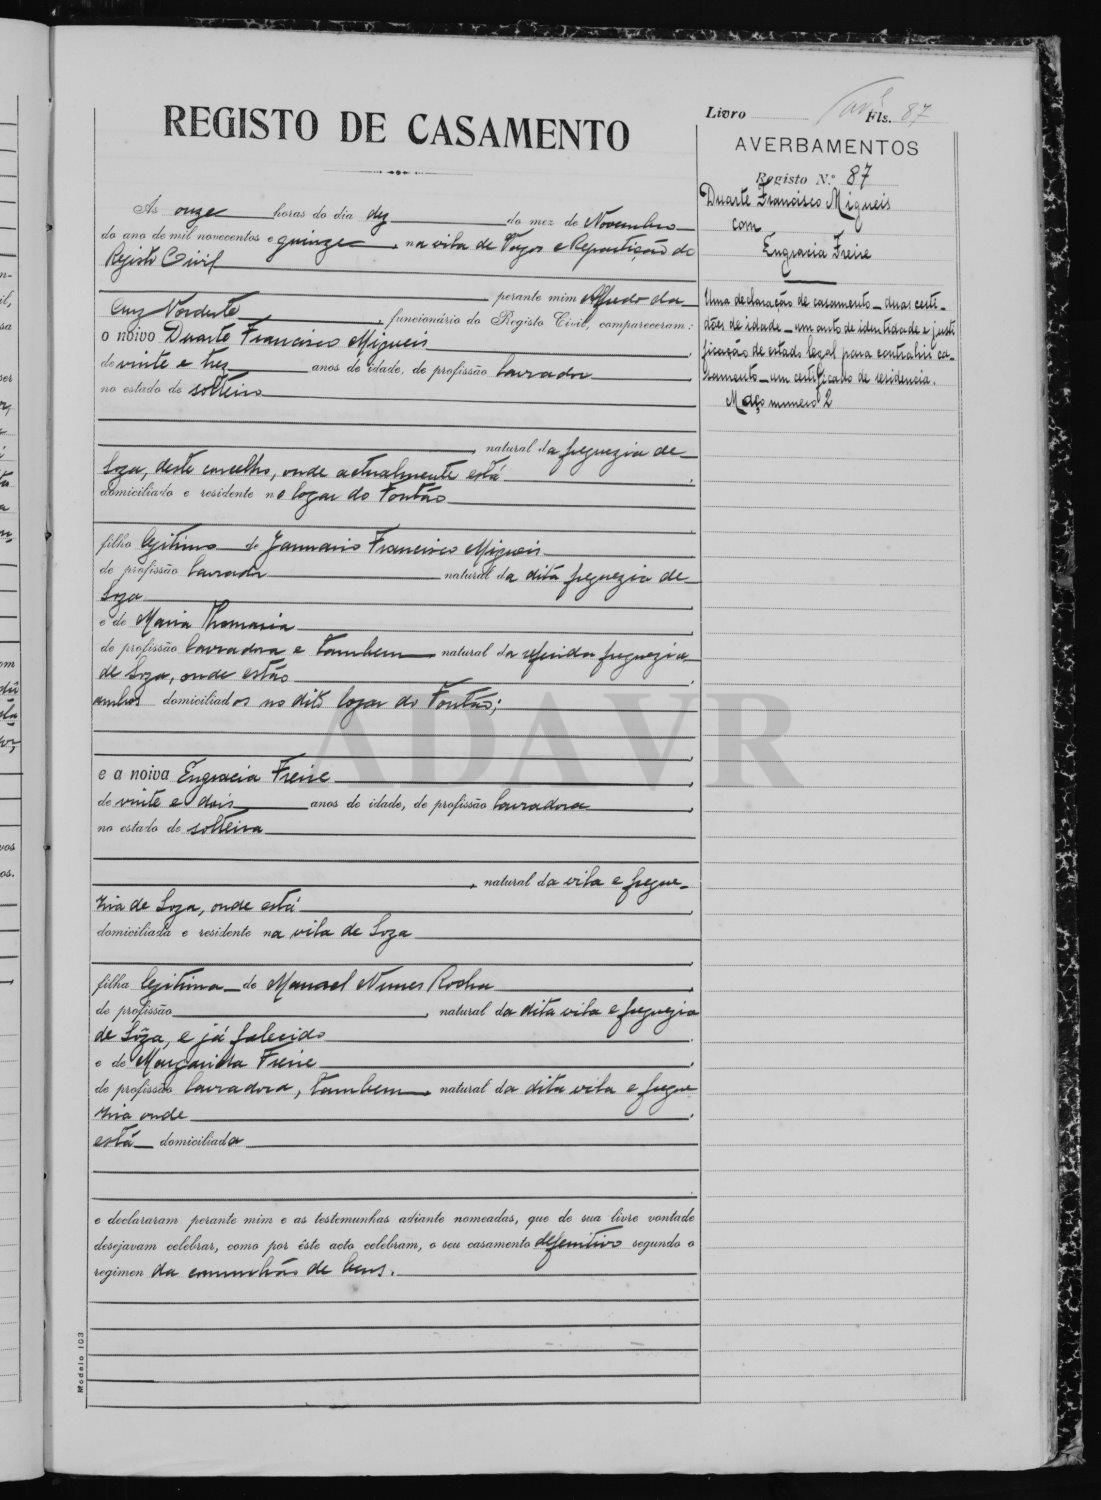 Livro Fls. 87
REGISTO DE CASAMENTO
AVERBAMENTOS
Registo N.º 87
Duarte Francisco Migueis
com
Engracia Freire
Uma declaração de casamento - duas certi-
dões de idade - um auto de identidade e justi
ficação de estado legal para contrahir ca-
samento - um certificado de residencia.
Maço numero 2
As onze horas do dia dez do mez de Novembro
do ano de mil novecentos e quinze, na vila de Vagos e Repartição do
Registo Civil
perante mim Alfredo da
Cruz Nordeste, funcionário do Registo Civil, compareceram:
o noivo Duarte Francisco Migueis
de vinte e tres anos de idade, de profissão lavrador
no estado de solteiro
, natural da freguezia de
Soza, deste concelho, onde actualmente está
domiciliado e residente no logar do Fontão
filho legitimo de Januario Francisco Migueis
de profissão lavrador natural da dita freguezia de
Soza
e de Maria Thomasia
de profissão lavradora e tambem natural da referida freguezia
de Soza, onde estão
ambos domiciliados no dito logar do Fontão;
e a noiva Engracia Freire
de vinte e dois anos de idade, de profissão lavradora
no estado de solteira
, natural da vila e fregue-
zia de Soza, onde está
domiciliada e residente na vila de Soza
filha legitima de Manoel Nunes Rocha
de profissão , natural da dita vila e freguezia
de Sôza, e já falecido
e de Margarida Freire
de profissão lavradora, tambem natural da dita vila e fregue
zia onde
está domiciliada
e declararam perante mim e as testemunhas adiante nomeadas, que de sua livre vontade
desejavam celebrar, como por êste acto celebram, o seu casamento defenitivo segundo o
regimen da comunhão de bens.
Modelo 103
ADAVR